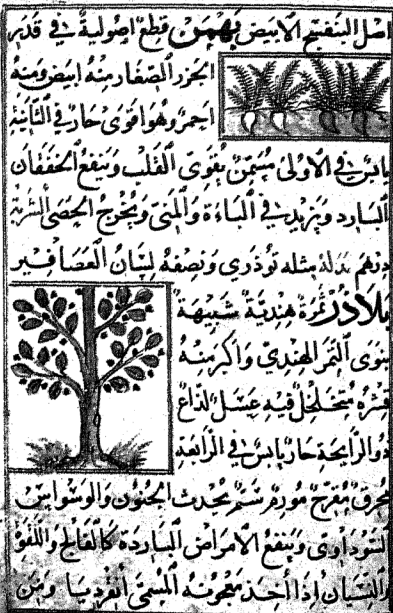 اصل البنفسج الابيض بهمن قطع اصولية في قدر
الجزر الصغار منه ابيض ومنه
احمر وهو اقوى حار في الثانية
يابس في الاولى مسمن يقوى القلب وينفع الخفقان
البارد ويزيد في الباءة والمنى ويخرج الحصى الشربة
درهم بدله مثله توذري ونصفه لسان العصافير
بلاذر ثمرة هندية شبيهة
بنوى التمر الهندي واكبر منه
قشره متخلخل فيه عسل لذاع
ذو الرايحة حار يابس في الرابعة
محرق مقرح مورم سم يحدث الجنون والوسواس
السوداوى وينفع الامراض الباردة كالفالج واللقوة
والنسيان اذا أخذ معجونه المسمى أنقرديا ومن